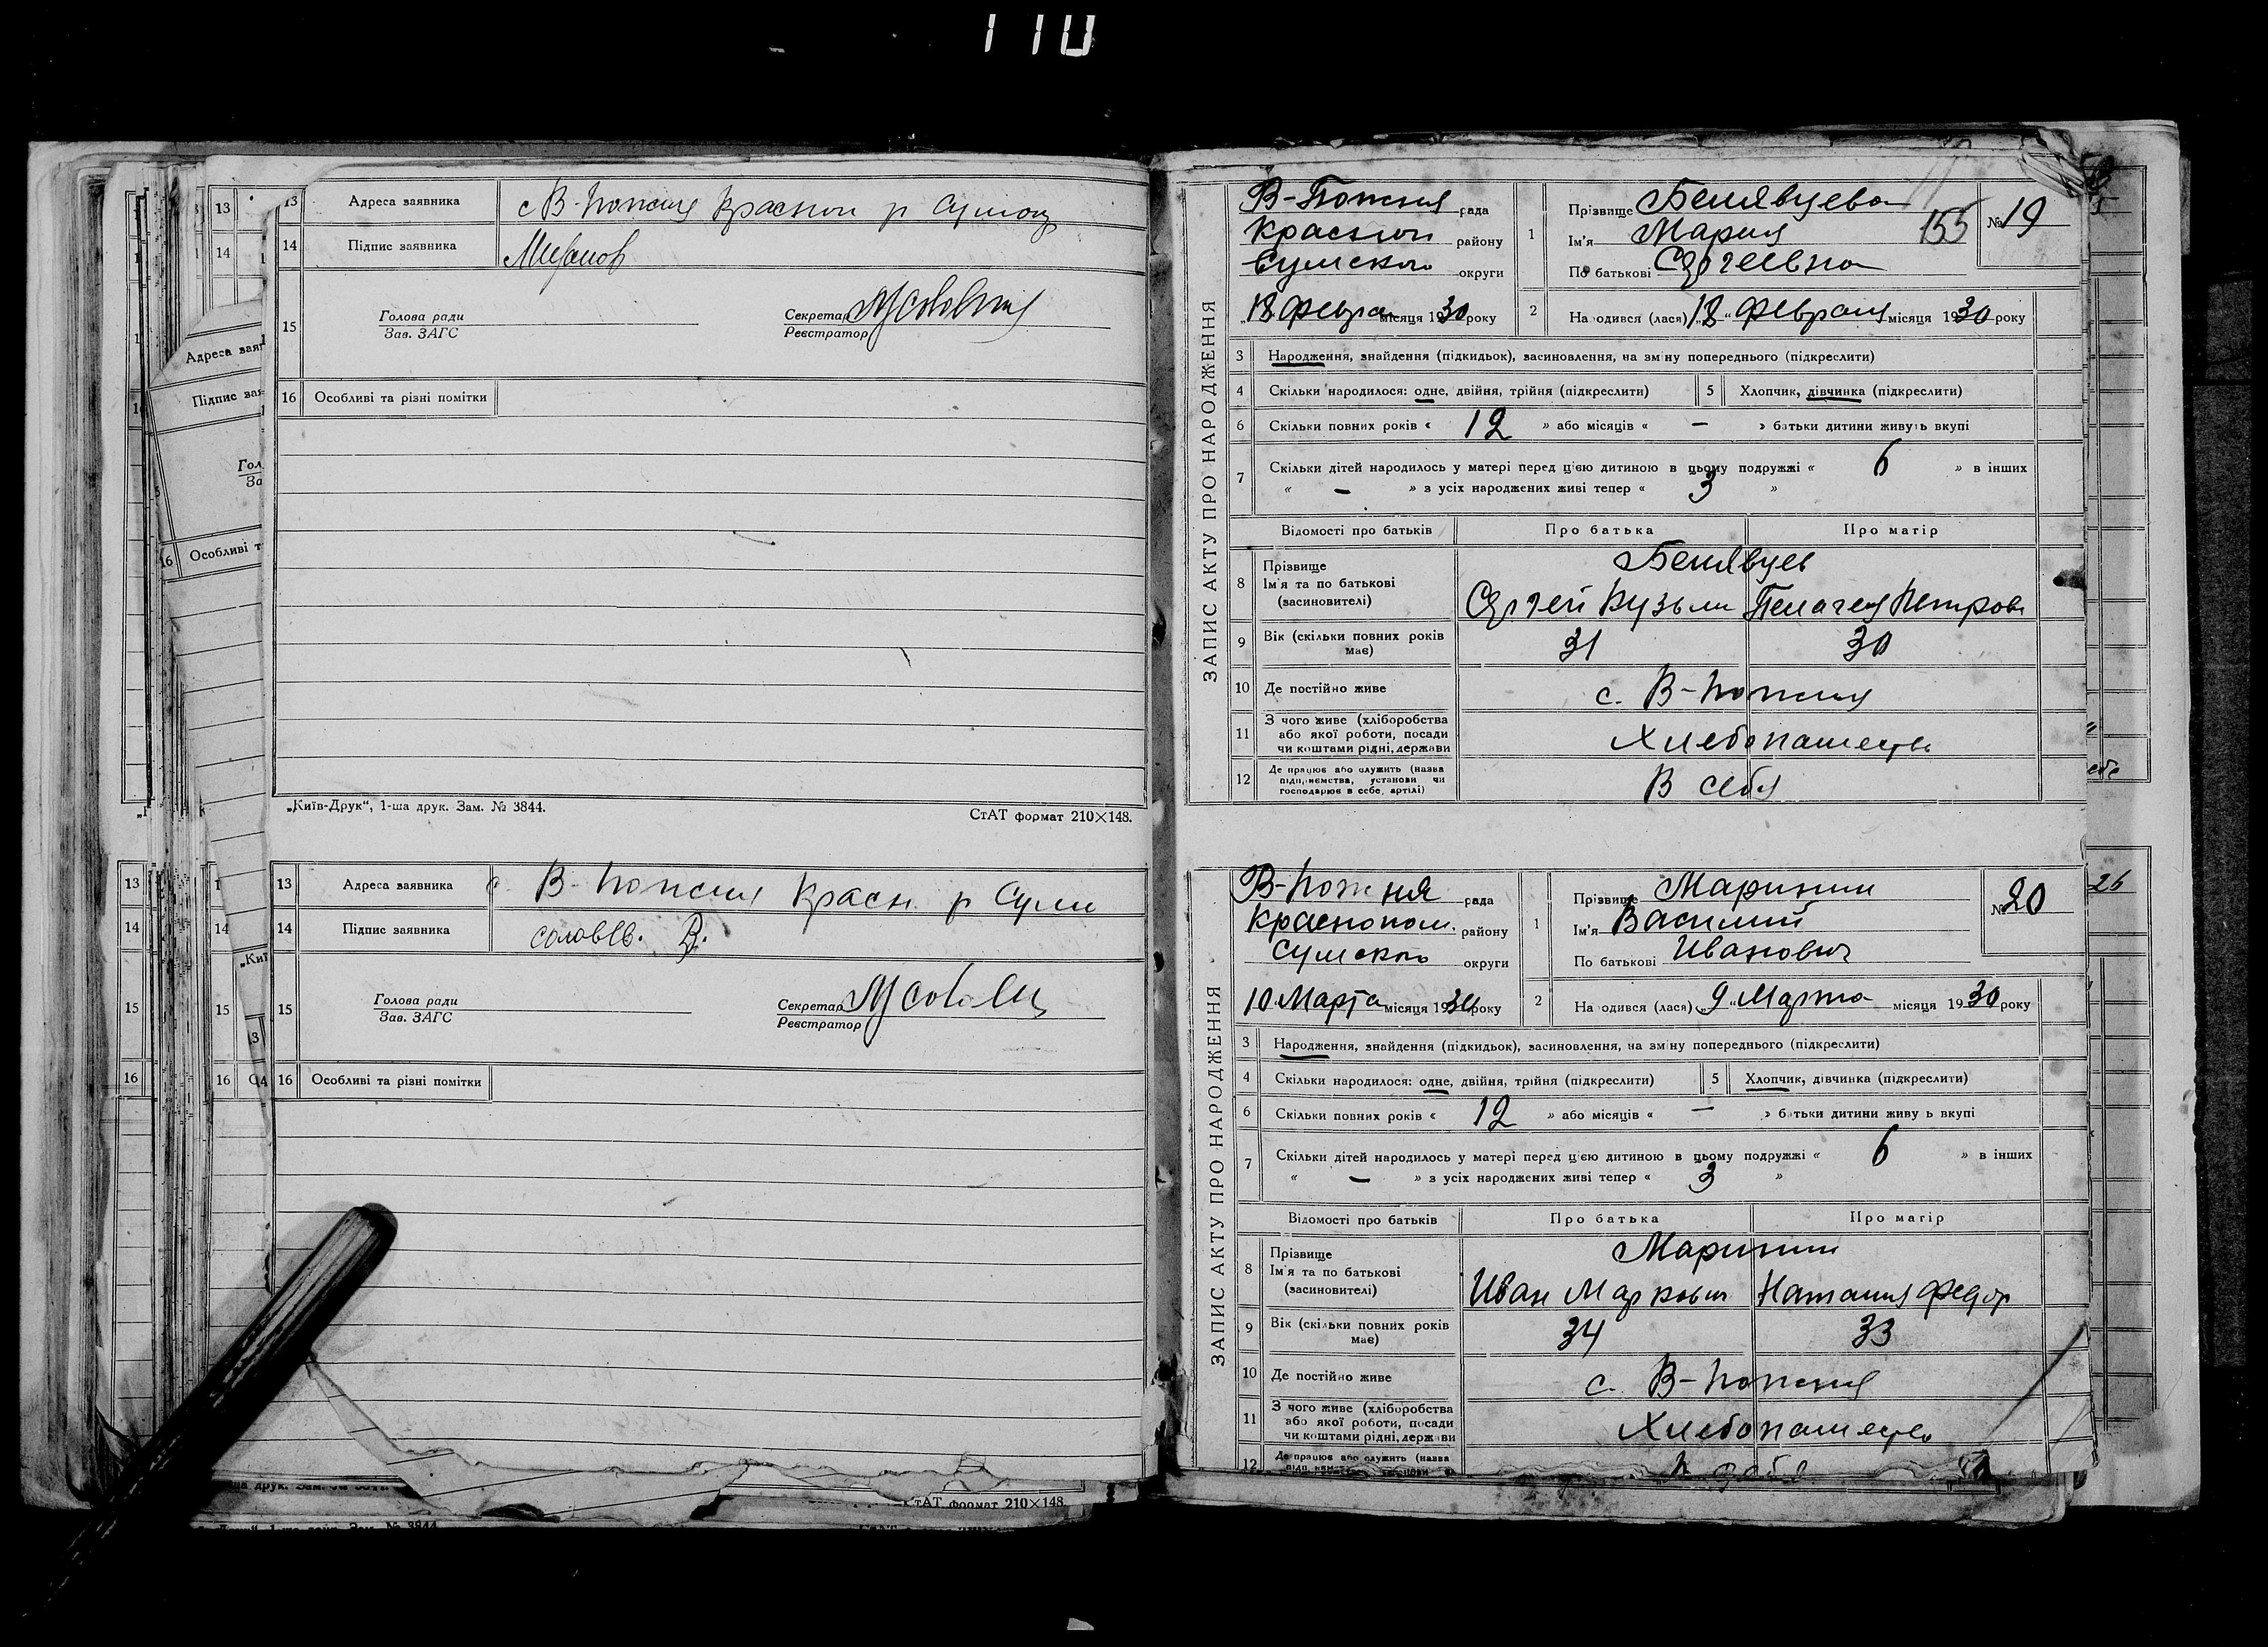 110
13 Адреса заявника с В-Пожня Красноп р Сумощ
14 Підпис заявника
15 Голова ради Секретар
Зав. ЗАГС Реєстратор
16 Особливі та різні помітки
„Київ-Друк“, 1-ша друк. Зам. № 3844. СтАТ формат 210×148.
13 Адреса заявника с. В-Пожня Красн. р Сумск
14 Підпис заявника Соловев. В.
15 Голова ради Секретар
Зав. ЗАГС Реєстратор
16 Особливі та різні помітки
СтАТ формат 210×148.
ЗАПИС АКТУ ПРО НАРОДЖЕННЯ
В-Пожня рада
Краспол району
Сумского округи
„18 Февра місяця 1930 року
1 Прізвище Белявцева
Ім'я Мария 155
По батькові Сергеевна
№ 19
2 Народився (лася) „18“ Февраля місяця 1930 року
3 Народження, знайдення (підкидьок), засиновлення, на зміну попереднього (підкреслити)
4 Скільки народилося: одне, двійня, трійня (підкреслити) 5 Хлопчик, дівчинка (підкреслити)
6 Скільки повних років « 12 » або місяців « – » батьки дитини живуть вкупі
7 Скільки дітей народилось у матері перед цією дитиною в цьому подружжі « 6 » в інших
« – » з усіх народжених живі тепер « 3 »
Відомості про батьків Про батька Про матір
8 Прізвище Белявцев
Ім'я та по батькові
(засиновителі) Сергей Кузьми Пелагея Петров
9 Вік (скільки повних років має) 31 30
10 Де постійно живе с. В-Пожня
11 З чого живе (хліборобства
або якої роботи, посади
чи коштами рідні, держави Хлебопашеств
12 Де працює або служить (назва
підприємства, установи чи
господарює в себе, артілі) В себя
ЗАПИС АКТУ ПРО НАРОДЖЕННЯ
В-Пожня рада
Краснопол. району
Сумского округи
10 Марта місяця 1930 року
1 Прізвище Маринин
Ім'я Василий
По батькові Иванович
№ 20
2 Народився (лася) „9“ Марта місяця 1930 року
3 Народження, знайдення (підкидьок), засиновлення, на зміну попереднього (підкреслити)
4 Скільки народилося: одне, двійня, трійня (підкреслити) 5 Хлопчик, дівчинка (підкреслити)
6 Скільки повних років « 12 » або місяців « – » батьки дитини живуть вкупі
7 Скільки дітей народилось у матері перед цією дитиною в цьому подружжі « 6 » в інших
« – » з усіх народжених живі тепер « 3 »
Відомості про батьків Про батька Про матір
8 Прізвище Маринин
Ім'я та по батькові
(засиновителі) Иван Маркович Наталия Федор
9 Вік (скільки повних років має) 34 33
10 Де постійно живе с. В-Пожня
11 З чого живе (хліборобства
або якої роботи, посади
чи коштами рідні, держави Хлебопашеств
12 Де працює або служить (назва